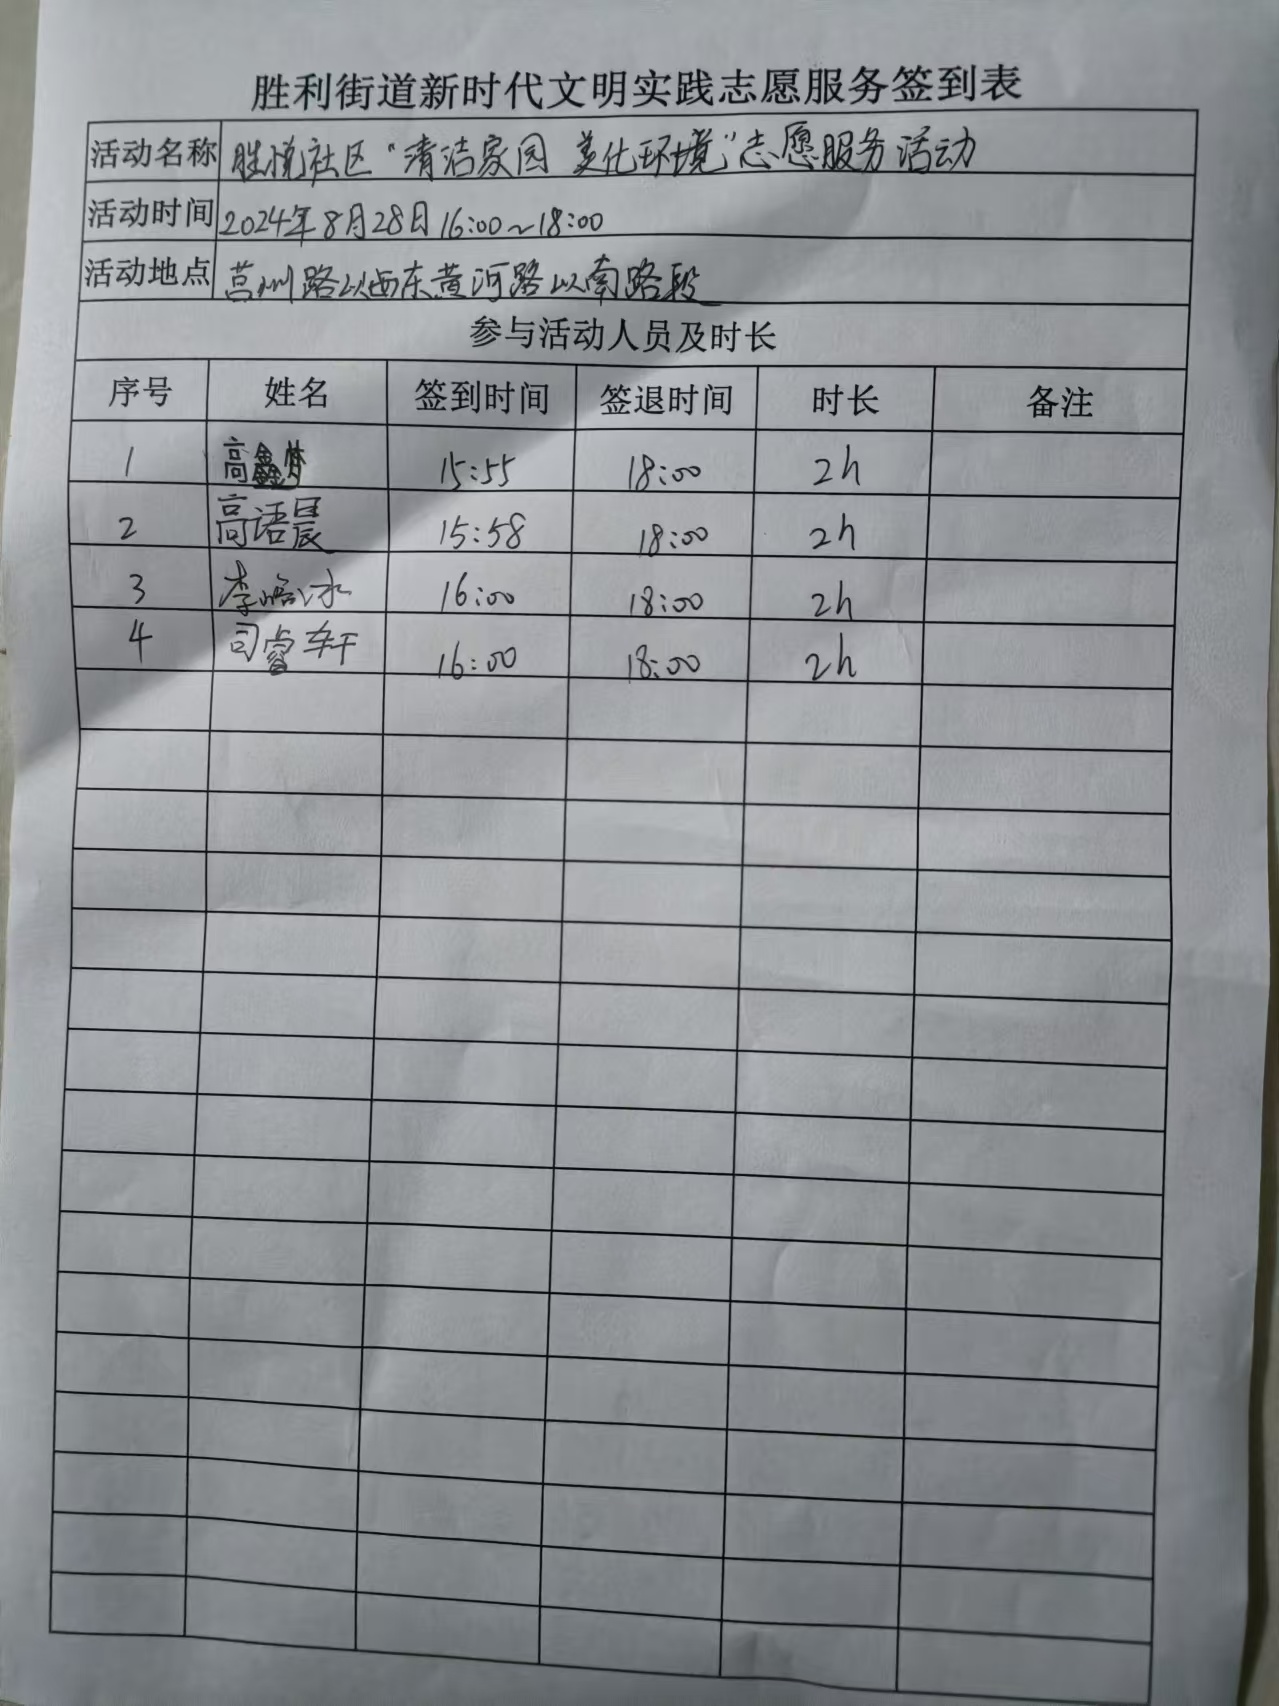 胜利街道新时代文明实践志愿服务签到表
活动名称 胜悦社区“清洁家园 美化环境”志愿服务活动
活动时间 2024年8月28日16:00~18:00
活动地点 莒州路以西东黄河路以南路段
参与活动人员及时长
序号 姓名 签到时间 签退时间 时长 备注
1 高鑫梦 15:55 18:00 2h
2 高语晨 15:58 18:00 2h
3 李 16:00 18:00 2h
4 司睿轩 16:00 18:00 2h